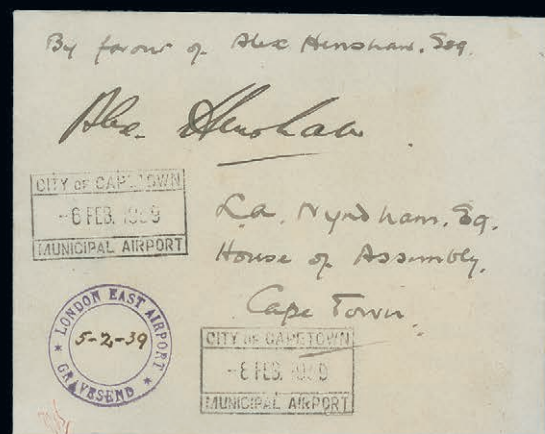 By favour of Alex Henshaw. Esq.
Alex. Henshaw
CITY OF CAPETOWN
-6 FEB. 1939
MUNICIPAL AIRPORT
L.A. Wyndham. Esq.
House of Assembly,
Cape Town.
LONDON EAST AIRPORT
5-2-39
* GRAVESEND *
CITY OF CAPETOWN
-6 FEB. 1939
MUNICIPAL AIRPORT